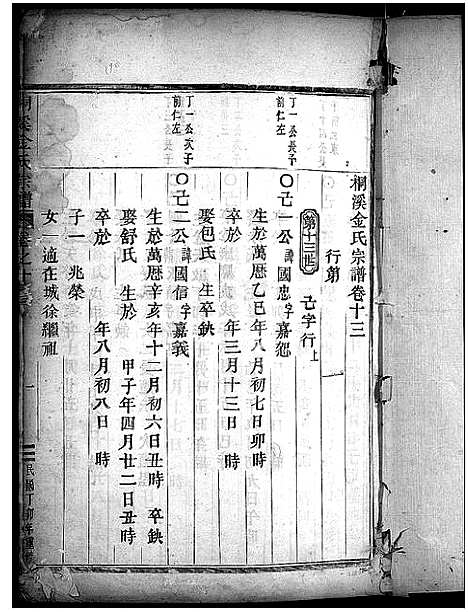 桐溪金氏宗譜卷十三
行第
第十三世 己字行上
丁一公長子
前仁左
〇己一公諱國忠字嘉恕
生於萬曆乙巳年八月初七日卯時
卒於 年三月十三日 時
娶包氏 生卒缺
丁一公次子
前仁左
〇己二公諱國信字嘉義
生於萬曆辛亥年十二月初六日丑時 卒缺
娶舒氏 生於 甲子年四月廿二日丑時
卒於 年八月初八日 時
子一 兆榮
女一 適在城徐繼祖
桐溪金氏宗譜 卷之十三
一
民國丁卯年重修